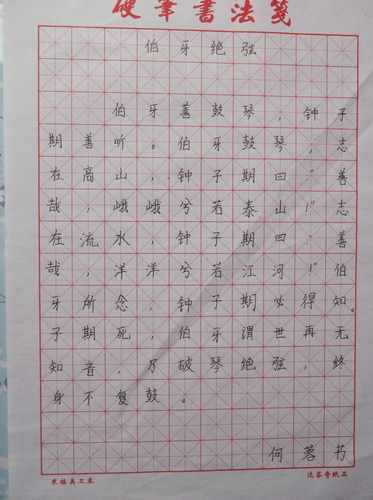 硬筆書法箋
伯牙绝弦
伯牙善鼓琴，钟子
期善听。伯牙鼓琴，志
在高山，钟子期曰：“善
哉，峨峨兮若泰山！”志
在流水，钟子期曰：“善
哉，洋洋兮若江河！”伯
牙所念，钟子期必得知。
子期死，伯牙谓世再无
知音，乃破琴绝弦，终
身不复鼓。
何蓉书
达芬奇纸品